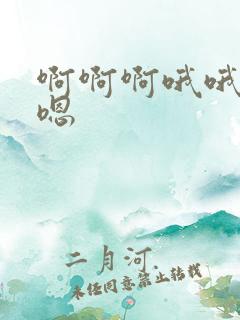 啊啊啊哦哦
嗯
二月河.
未经同意禁止转载